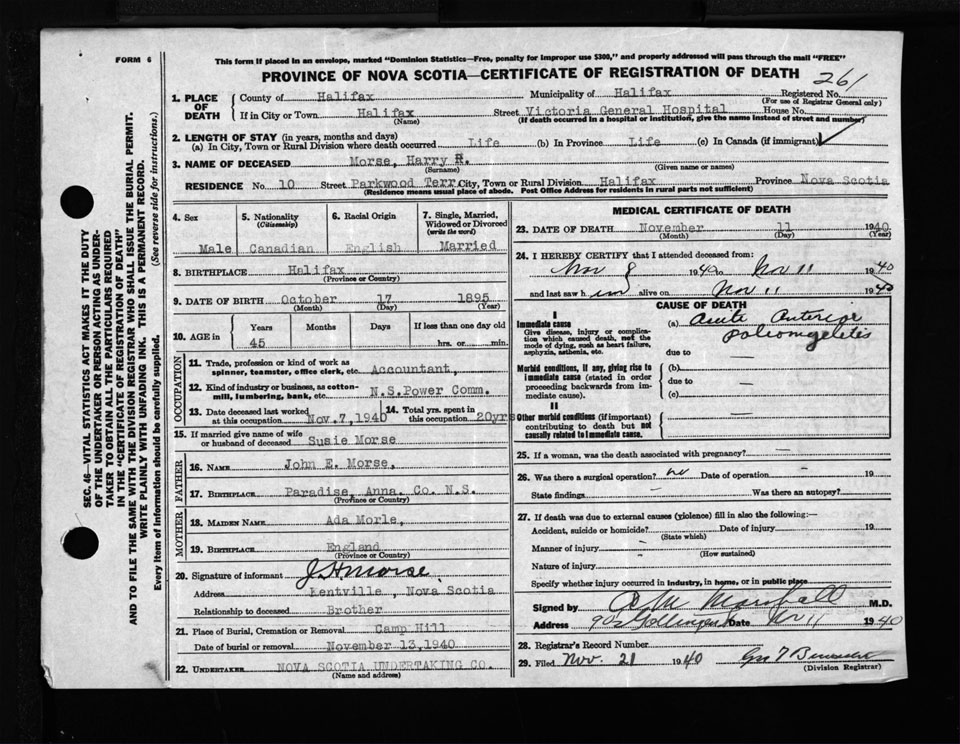 FORM 6
This form if placed in an envelope, marked "Dominion Statistics—Free, penalty for improper use $300," and properly addressed will pass through the mail "FREE"
PROVINCE OF NOVA SCOTIA—CERTIFICATE OF REGISTRATION OF DEATH
261
1. PLACE OF DEATH County of Halifax Municipality of Halifax Registered No.
(For use of Registrar General only)
If in City or Town Halifax Street Victoria General Hospital House No.
(Name) (If death occurred in a hospital or institution, give the name instead of street and number)
2. LENGTH OF STAY (in years, months and days)
(a) In City, Town or Rural Division where death occurred Life (b) In Province Life (c) In Canada (if immigrant)
3. NAME OF DECEASED Morse, Harry R.
(Surname) (Given name or names)
RESIDENCE No. 10 Street Parkwood Terr City, Town or Rural Division Halifax Province Nova Scotia
(Residence means usual place of abode. Post Office Address for residents in rural parts not sufficient)
4. Sex Male
5. Nationality (Citizenship) Canadian
6. Racial Origin English
7. Single, Married, Widowed or Divorced (write the word) Married
8. BIRTHPLACE Halifax
(Province or Country)
9. DATE OF BIRTH October 17 1895
(Month) (Day) (Year)
10. AGE in Years Months Days If less than one day old
45 hrs. or min.
OCCUPATION
11. Trade, profession or kind of work as spinner, teamster, office clerk, etc. Accountant,
12. Kind of industry or business, as cotton-mill, lumbering, bank, etc. N.S.Power Comm.
13. Date deceased last worked at this occupation Nov.7,1940
14. Total yrs. spent in this occupation 20yrs
15. If married give name of wife or husband of deceased Susie Morse
FATHER
16. NAME John E. Morse,
17. BIRTHPLACE Paradise, Anna. Co. N.S.
(Province or Country)
MOTHER
18. MAIDEN NAME Ada Morle,
19. BIRTHPLACE England
(Province or Country)
20. Signature of informant J.H Morse.
Address Kentville, Nova Scotia
Relationship to deceased Brother
21. Place of Burial, Cremation or Removal Camp Hill
Date of burial or removal November 13,1940
22. UNDERTAKER NOVA SCOTIA UNDERTAKING CO.
(Name and address)
MEDICAL CERTIFICATE OF DEATH
23. DATE OF DEATH November 11 1940
(Month) (Day) (Year)
24. I HEREBY CERTIFY that I attended deceased from:
Nov 8 1940 to Nov 11 1940
and last saw him alive on Nov 11 1940
CAUSE OF DEATH
I
Immediate cause
Give disease, injury or complication which caused death, not the mode of dying, such as heart failure, asphyxia, asthenia, etc.
(a) Acute Anterior
poliomyelitis
due to —
Morbid conditions, if any, giving rise to immediate cause (stated in order proceeding backwards from immediate cause).
(b)
due to —
(c)
II
Other morbid conditions (if important) contributing to death but not causally related to immediate cause.
—
25. If a woman, was the death associated with pregnancy? —
26. Was there a surgical operation? no Date of operation — 19
State findings — Was there an autopsy?
27. If death was due to external causes (violence) fill in also the following:—
Accident, suicide or homicide? Date of injury 19
(State which)
Manner of injury —
(How sustained)
Nature of injury
Specify whether injury occurred in industry, in home, or in public place
Signed by Marshall M.D.
Address Date Nov 11 1940
28. Registrar's Record Number
29. Filed Nov. 21 1940
(Division Registrar)
SEC. 46—VITAL STATISTICS ACT MAKES IT THE DUTY
OF THE UNDERTAKER OR PERSON ACTING AS UNDER-
TAKER TO OBTAIN ALL THE PARTICULARS REQUIRED
IN THE "CERTIFICATE OF REGISTRATION OF DEATH"
AND TO FILE THE SAME WITH THE DIVISION REGISTRAR WHO SHALL ISSUE THE BURIAL PERMIT.
WRITE PLAINLY WITH UNFADING INK. THIS IS A PERMANENT RECORD.
Every item of Information should be carefully supplied. (See reverse side for instructions.)